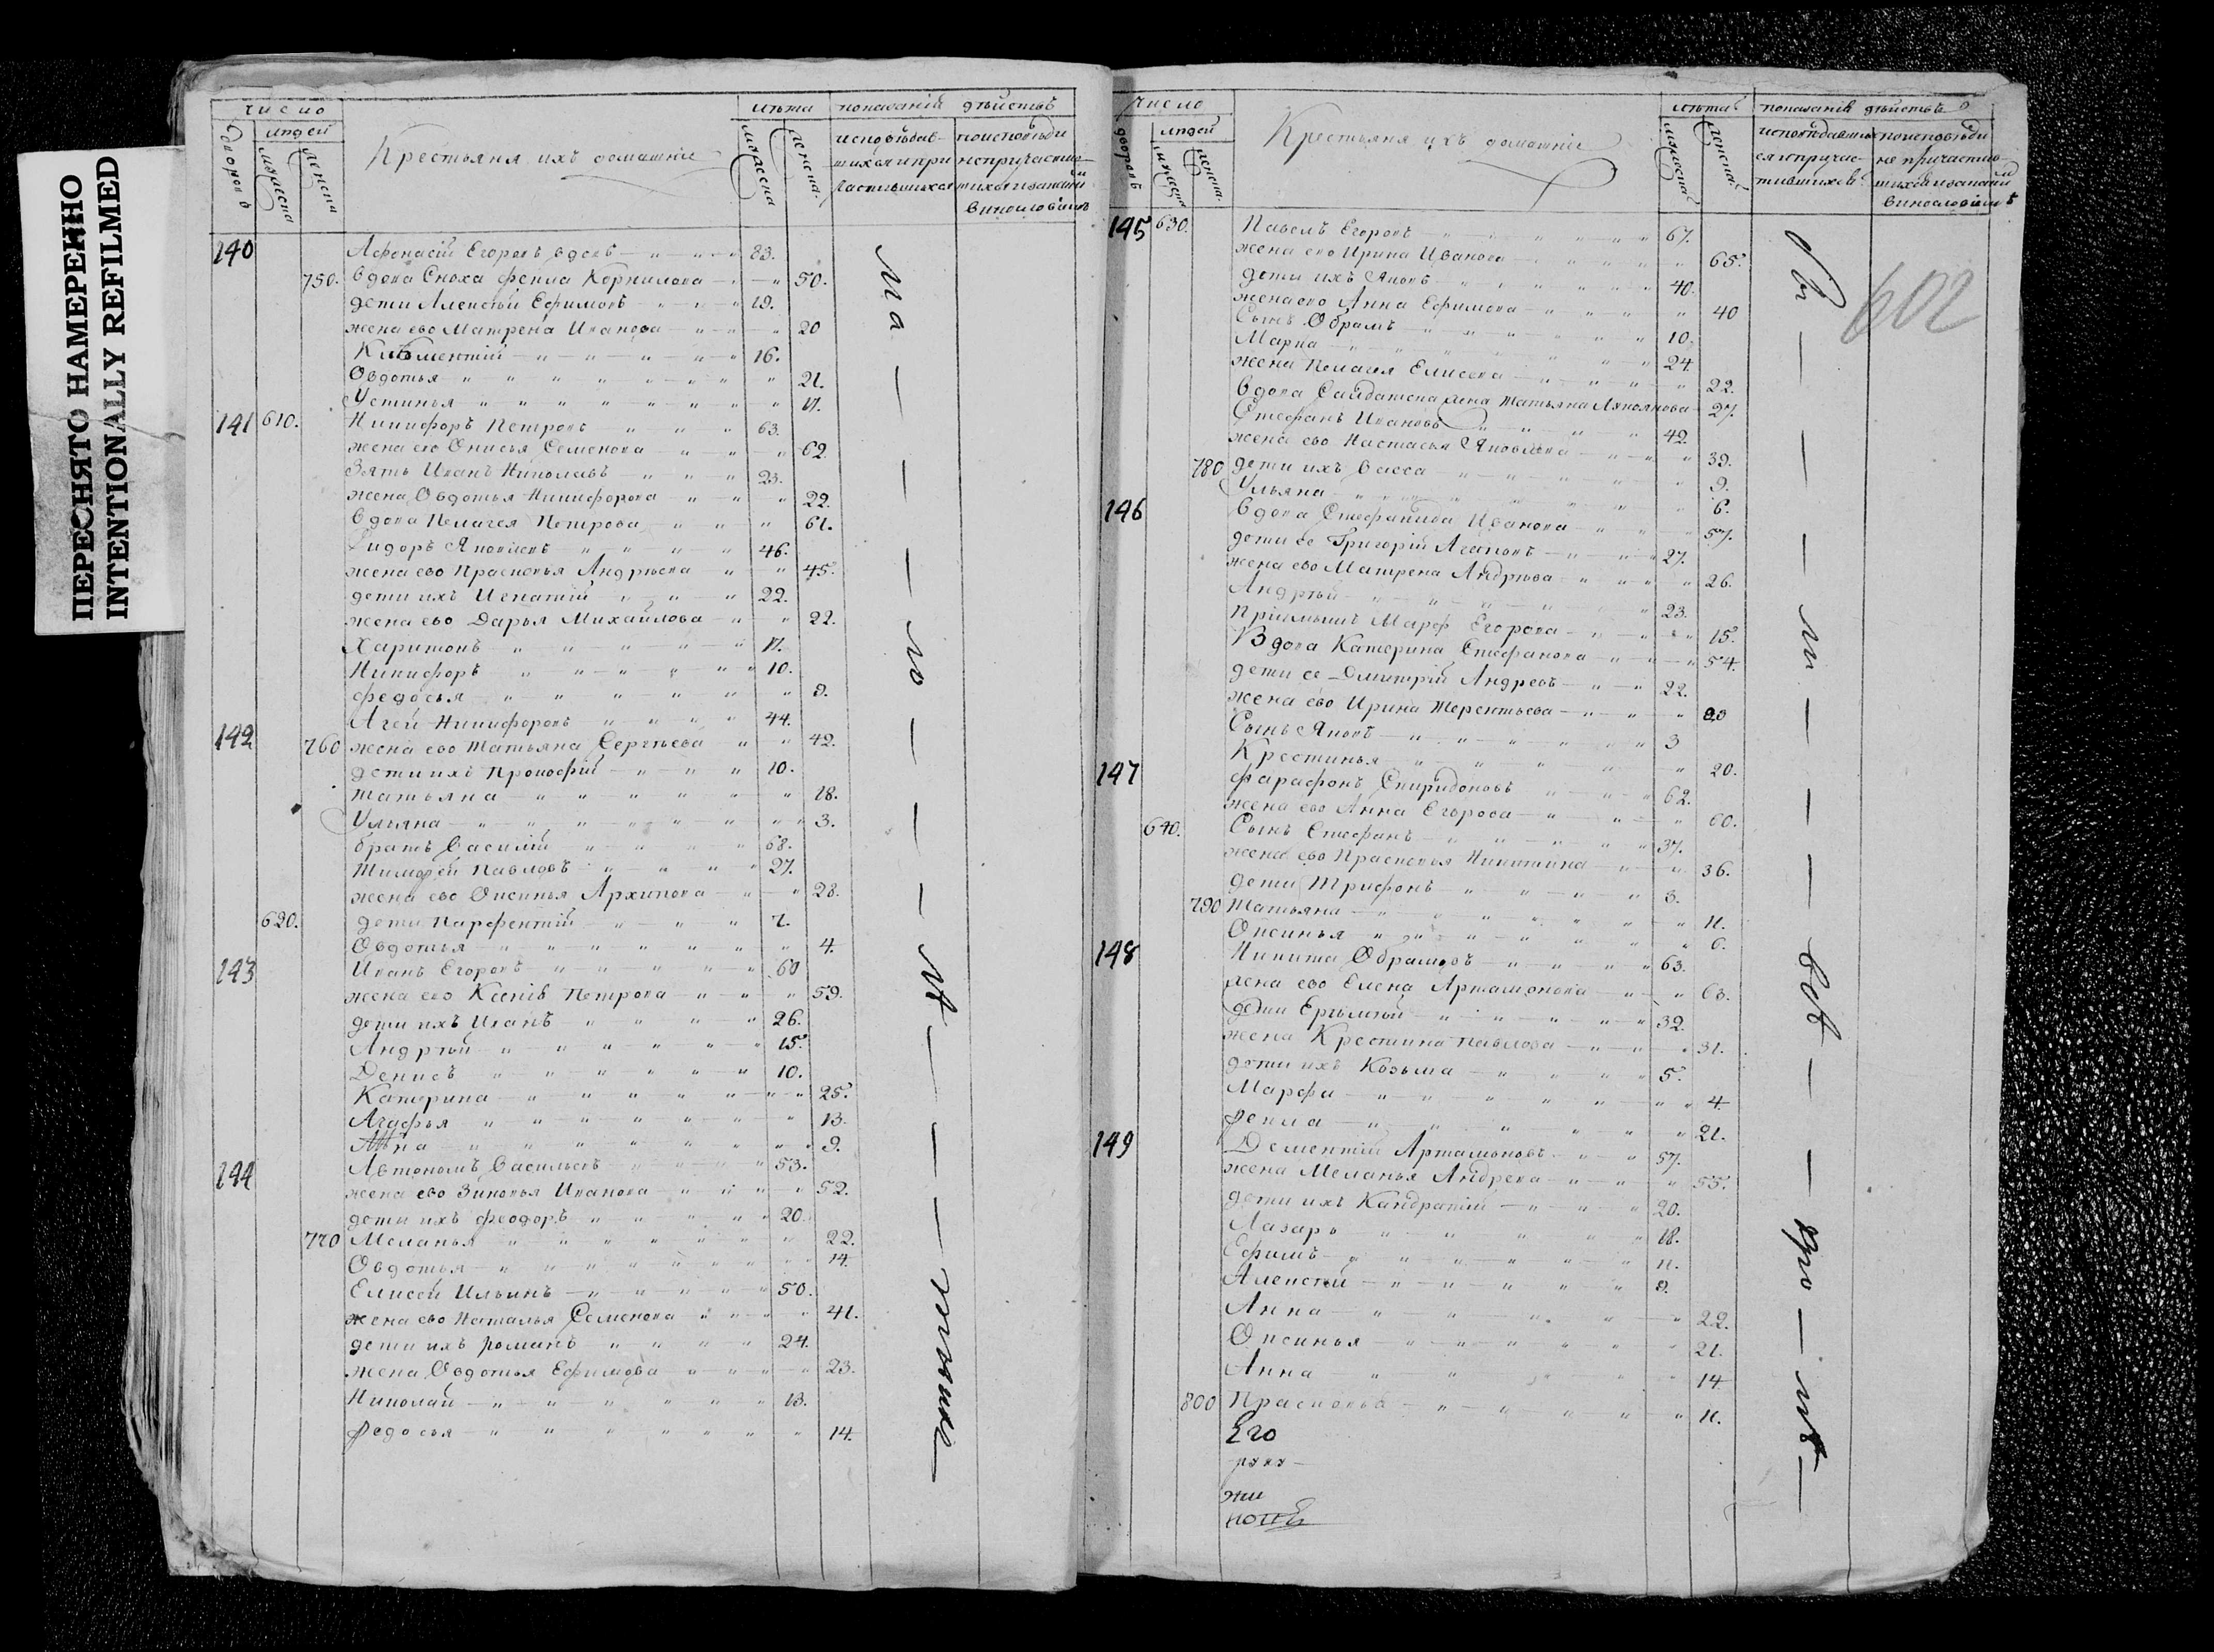 ПЕРЕСНЯТО НАМЕРЕННО
INTENTIONALLY REFILMED
число лѣта показанїй дѣйствъ
дворовъ людей Крестьяня ихъ домашнїе мужеска женска исповѣдав- поисповѣди
мужеска женска шихся и при непричастив-
частившихся шихся и законїи
виносло вїемъ
140 Афонасїй Егоровъ вдовъ 83.
750. Вдова Сноха Фекла Корнилова 50.
дети Алексѣй Ефимовъ 19.
жена ево Матрена Иванова 20
Климентїй 16.
Овдотья 21.
Устинья 17.
141 610. Никифоръ Петровъ 63.
жена его Онисья Семенова 62.
Зять Иванъ Николаевъ 23.
жена Овдотья Никифорова 22.
Вдова Пелагея Петрова 61.
Сидоръ Яковлевъ 46.
жена ево Прасковья Андрѣева 45.
дети ихъ Игнатїй 22.
жена ево Дарья Михайлова 22.
Харитонъ 17.
Никифоръ 10.
Федосья 9.
Агей Никифоровъ 44.
142 760 жена ево Татьяна Сергѣева 42.
дети ихъ Прокофїй 10.
Татьяна 18.
Ульяна 3.
братъ Василїй 68.
Тимофей Павловъ 27.
жена ево Оксинья Архипова 28.
620. дети Парфентїй 7.
Овдотья 4.
143 Иванъ Егоровъ 60
жена его Ксенїя Петрова 59.
дети ихъ Иванъ 26.
Андрѣй 15.
Денисъ 10.
Катерина 25.
Агафья 13.
Анна 9.
144 Автономъ Васильевъ 53.
жена ево Зиновья Иванова 52.
дети ихъ Феодоръ 20.
770 Меланья 22.
Овдотья 14.
Елисей Ильинъ 50.
жена ево Наталья Семенова 41.
дети ихъ Романъ 24.
жена Овдотья Ефимова 23.
Николай 13.
Федосья 14.
число лѣта показанїя дѣйствъ
дворовъ людей Крестьяня ихъ домашнїе мужеска женска исповѣдавши- поисповѣди
мужеска женска ся и причас- не причастив-
тившихся шихся и законїи
виносло вїемъ
602
145 630. Павелъ Егоровъ 67.
жена ево Ирина Иванова 65.
дети ихъ Яковъ 40.
жена ево Анна Ефимова 40
Сынъ Обрамъ 10.
Марка 24.
жена Пелагея Елисеева 22.
Вдова Салдатска жена Татьяна 27.
Стефанъ Ивановъ 42.
жена ево Настасья Яковлева 39.
780 дети ихъ Васса 9.
Ульяна 6.
146 Вдова Стефанида Иванова 57.
дети ее Григорїй Агеповъ 27.
жена ево Матрена Андрѣва 26.
Андрѣй 23.
Прїемышъ Марф Егорова 15.
Вдова Катерина Стефанова 54.
дети ее Дмитрїй Андреевъ 22.
жена ево Ирина Терентьева 20
Сынъ Яковъ 3
Крестинья 20.
147 Фарафонъ Спиридоновъ 62.
жена ево Анна Егорова 60.
640. Сынъ Стефанъ 37.
жена ево Прасковья Никитина 36.
дети Трифонъ 3.
790 Татьяна 11.
Оксинья 6.
148 Никита Обрамовъ 63.
жена ево Елена Артамонова 63.
дети Ермолай 32.
жена Крестина Павлова 31.
дети ихъ Козьма 5.
Марфа 4.
Фекла 21.
149 Дементїй Артамоновъ 57.
жена Меланья Андрева 55.
дети ихъ Кандратїй 20.
Лазарь 18.
Ефимъ 11.
Алексѣй 9.
Анна 22.
Оксинья 21.
Анна 14.
800 Прасковья 11.
Его